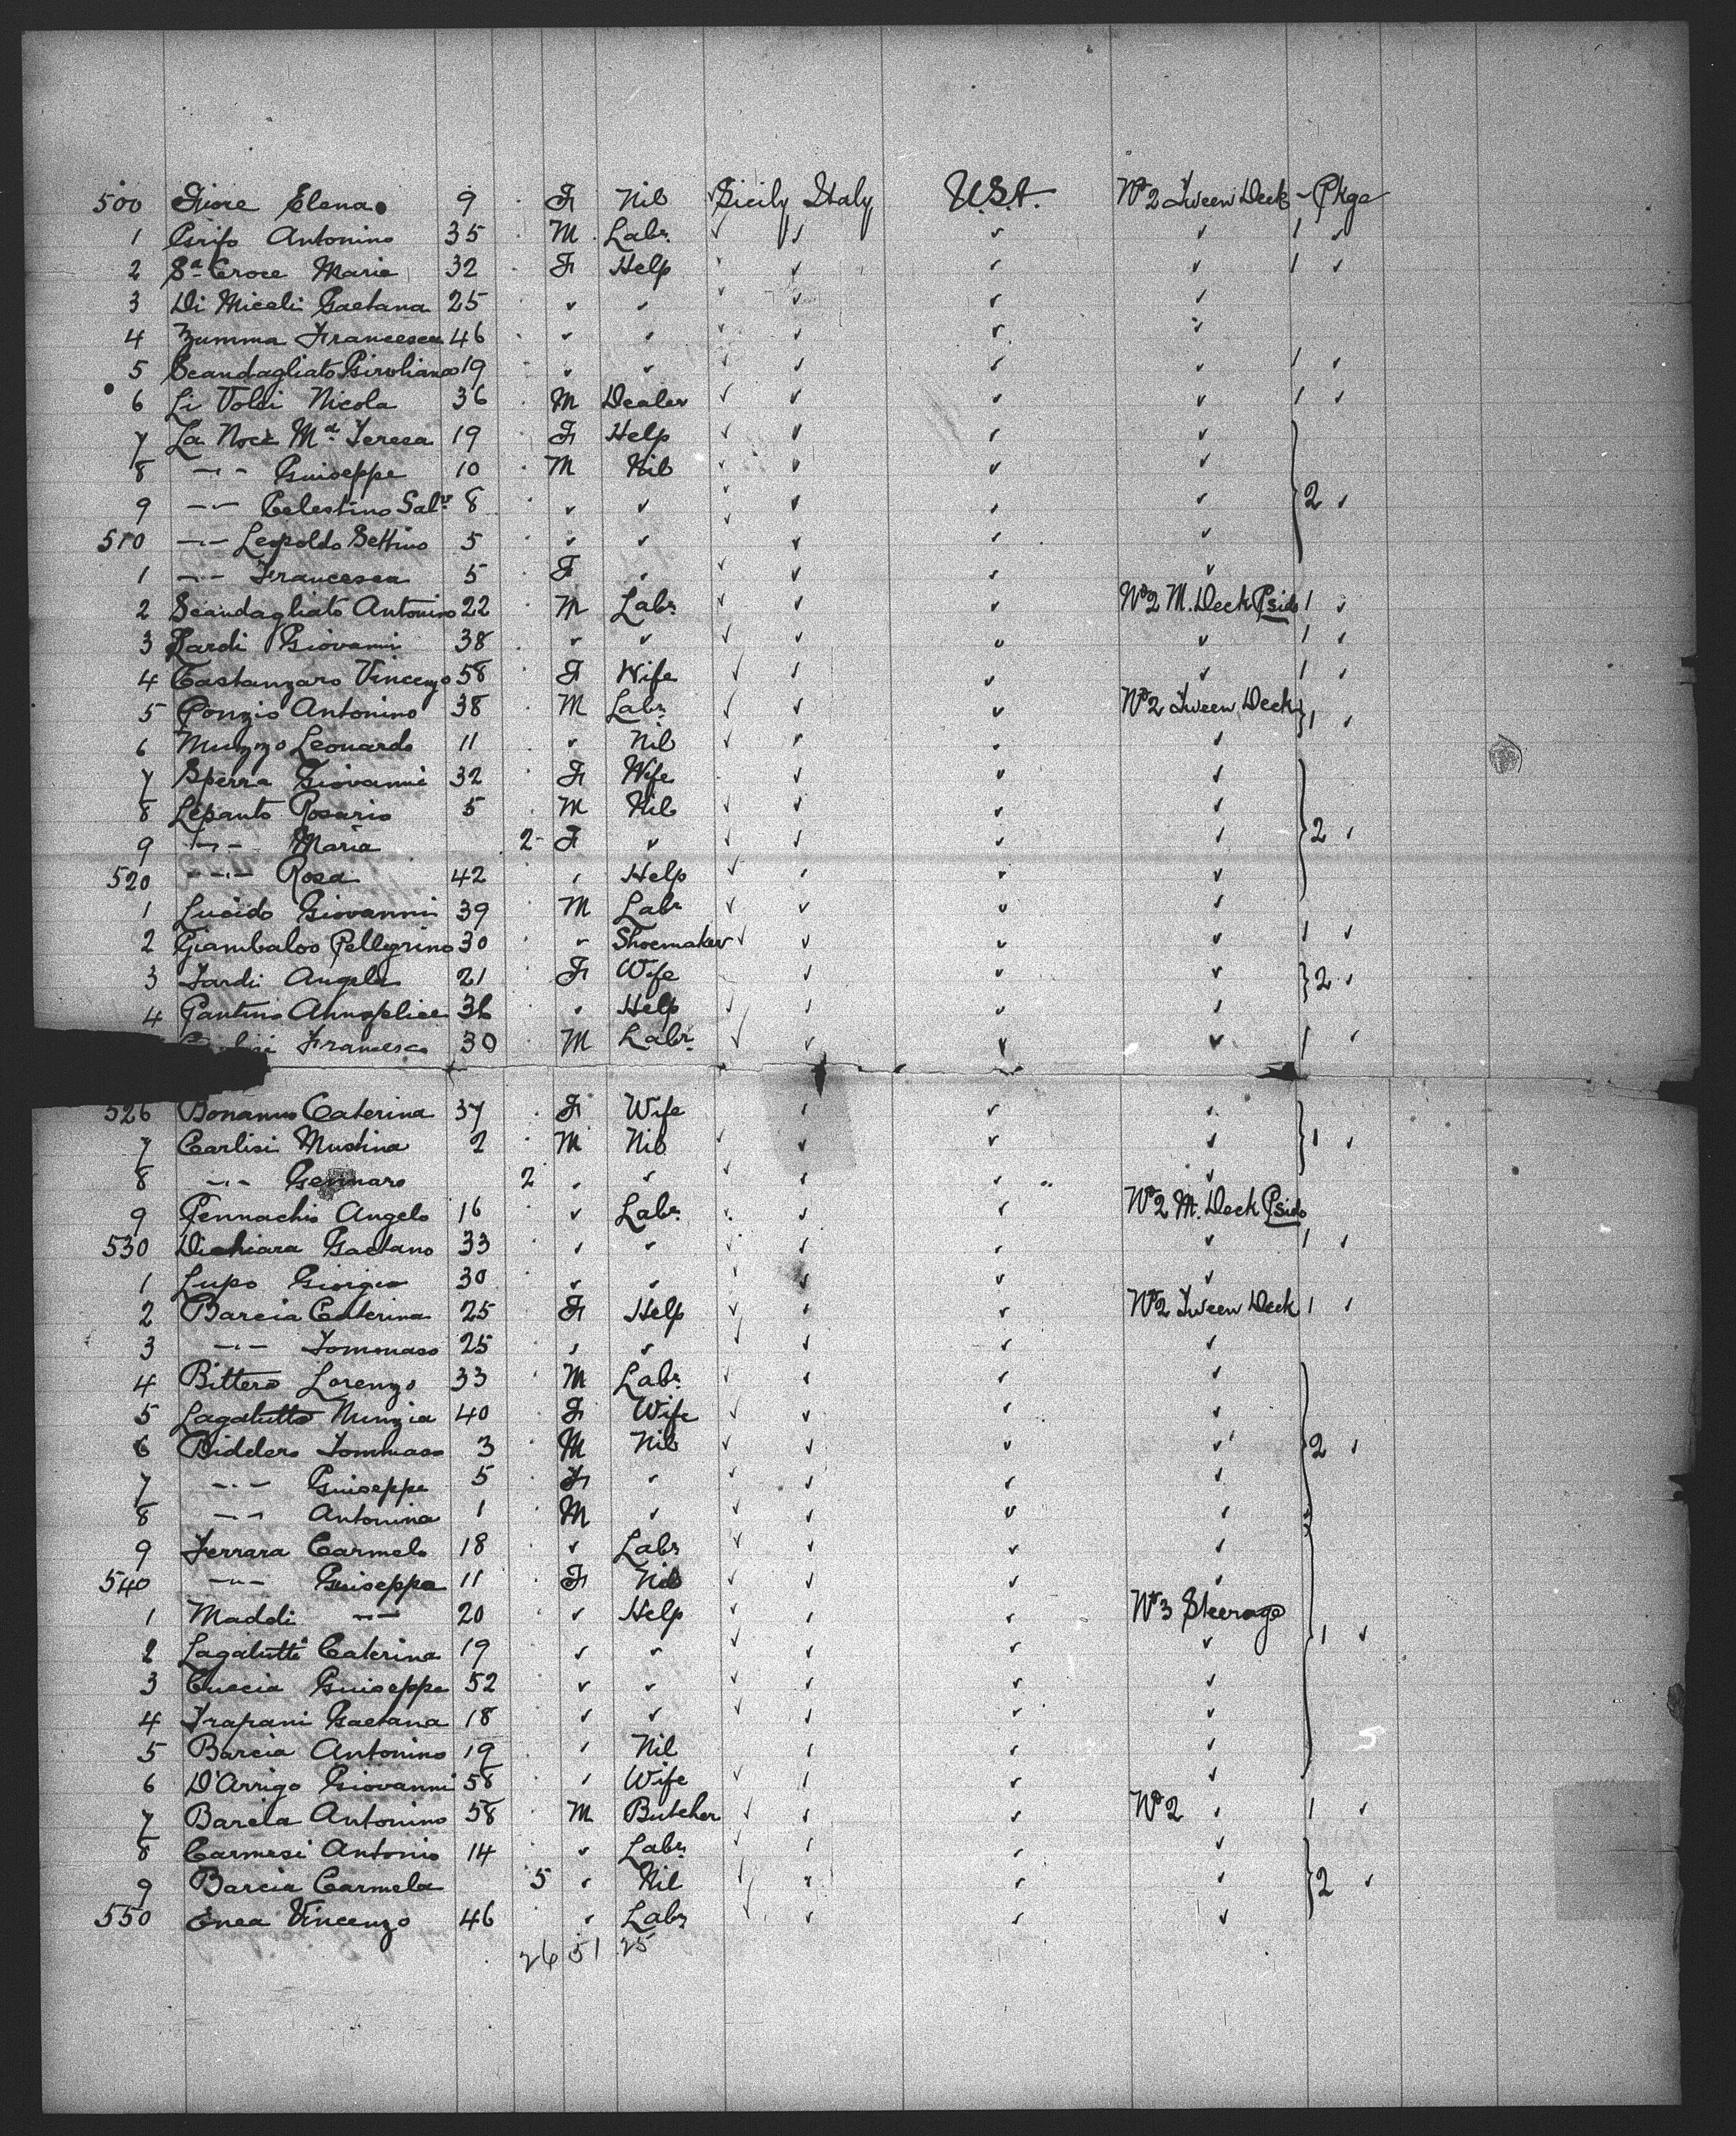 500 Fiore Elena 9 F Nil Sicily Italy U.S.A. No 2 Tween Deck - Pkge
1 Grifo Antonino 35 M Labr. ✓ ✓ ✓ ✓ 1 ✓
2 Sa Croce Maria 32 F Help ✓ ✓ ✓ ✓ 1 ✓
3 Di Miceli Gaetana 25 ✓ ✓ ✓ ✓ ✓ ✓
4 Zumma Francesca 46 ✓ ✓ ✓ ✓ ✓ ✓
5 Scandagliato 19 ✓ ✓ ✓ ✓ ✓ ✓ 1 ✓
6 Li Volsi Nicola 36 M Dealer ✓ ✓ ✓ ✓ 1 ✓
7 La Noce Ma Teresa 19 F Help ✓ ✓ ✓ ✓
8 -"- Guiseppe 10 M Nil ✓ ✓ ✓ ✓
9 -"- Celestino Salr 8 ✓ ✓ ✓ ✓ ✓ ✓ } 2 ✓
510 -"- Leopoldo Settimo 5 ✓ ✓ ✓ ✓ ✓ ✓
1 -"- Francesca 5 F ✓ ✓ ✓ ✓ ✓
2 Scandagliato Antonino 22 M Labr. ✓ ✓ ✓ No 2 M. Deck Pside 1 ✓
3 Sardi Giovanni 38 ✓ ✓ ✓ ✓ ✓ ✓ 1 ✓
4 Castanzaro Vincenzo 58 F Wife ✓ ✓ ✓ ✓ 1 ✓
5 Ponzio Antonino 38 M Labr. ✓ ✓ ✓ No 2 Tween Deck } 1 ✓
6 Muzzo Leonardo 11 ✓ Nil ✓ ✓ ✓ ✓
7 Sperra Giovanni 32 F Wife ✓ ✓ ✓
8 Lepanto Rosario 5 M Nil ✓ ✓ ✓ ✓
9 -"- Maria 2 - F ✓ ✓ ✓ ✓ ✓ } 2 ✓
520 -"- Rosa 42 ✓ Help ✓ ✓ ✓ ✓
1 Lucido Giovanni 39 M Labr ✓ ✓ ✓ ✓
2 Giambalvo Pellegrino 30 ✓ Shoemaker ✓ ✓ ✓ ✓ 1 ✓
3 Tardi Angela 21 F Wife ✓ ✓ ✓ } 2 ✓
4 36 ✓ Help ✓ ✓ ✓ ✓
Francesco 30 M Labr. ✓ ✓ ✓ ✓ 1 ✓
526 Bonanno Caterina 37 F Wife ✓ ✓ ✓
7 Carlisi Mustina 2 M Nil ✓ ✓ ✓ ✓ } 1 ✓
8 -"- Gennaro 2 ✓ ✓ ✓ ✓ ✓ ✓
9 Pennachio Angelo 16 ✓ Labr. ✓ ✓ ✓ No 2 M. Deck Pside
530 Dichiara Gaetano 33 ✓ ✓ ✓ ✓ ✓ ✓ 1 ✓
1 Lupo Giorgio 30 ✓ ✓ ✓ ✓ ✓ ✓
2 Barcia Caterina 25 F Help ✓ ✓ ✓ No 2 Tween Deck 1 ✓
3 -"- Tommaso 25 ✓ ✓ ✓ ✓ ✓ ✓
4 Bittero Lorenzo 33 M Labr. ✓ ✓ ✓ ✓
5 Lagatutta Nunzia 40 F Wife ✓ ✓ ✓ ✓
6 Biddero Tommaso 3 M Nil ✓ ✓ ✓ ✓ } 2 ✓
7 -"- Guiseppe 5 F ✓ ✓ ✓ ✓ ✓
8 -"- Antonina 1 M ✓ ✓ ✓ ✓ ✓
9 Ferrara Carmelo 18 ✓ Labr ✓ ✓ ✓ ✓
540 -"- Guiseppa 11 F Nil ✓ ✓ ✓ ✓
1 Maddi -"- 20 ✓ Help ✓ ✓ ✓ No 3 Steerage
2 Lagatutti Caterina 19 ✓ ✓ ✓ ✓ ✓ ✓ } 1 ✓
3 Cuccia Guiseppe 52 ✓ ✓ ✓ ✓ ✓ ✓
4 Trapani Gaetana 18 ✓ ✓ ✓ ✓ ✓ ✓
5 Barcia Antonino 19 ✓ Nil ✓ ✓ ✓
6 D'Arrigo Giovanni 58 ✓ Wife ✓ ✓ ✓ ✓
7 Barcia Antonino 58 M Butcher ✓ ✓ ✓ No 2 ✓ 1 ✓
8 Carmesi Antonio 14 ✓ Labr ✓ ✓ ✓ ✓
9 Barcia Carmela 5 ✓ Nil ✓ ✓ ✓ ✓ } 2 ✓
550 Enea Vincenzo 46 ✓ Labr ✓ ✓ ✓ ✓
26 51 25
5